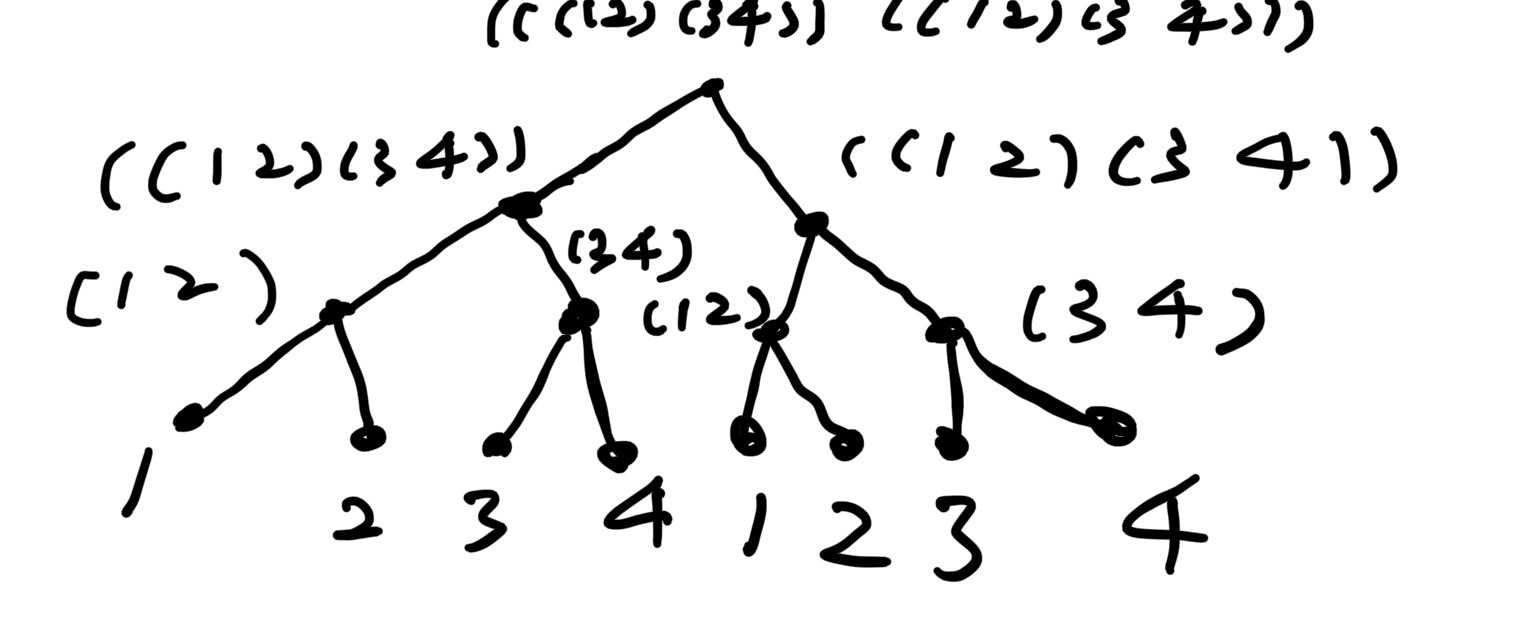 ((((12)(34)) ((12)(3 4)))
((12)(34)) ((12)(3 4))
(34)
(12) (12) (34)
1 2 3 4 1 2 3 4